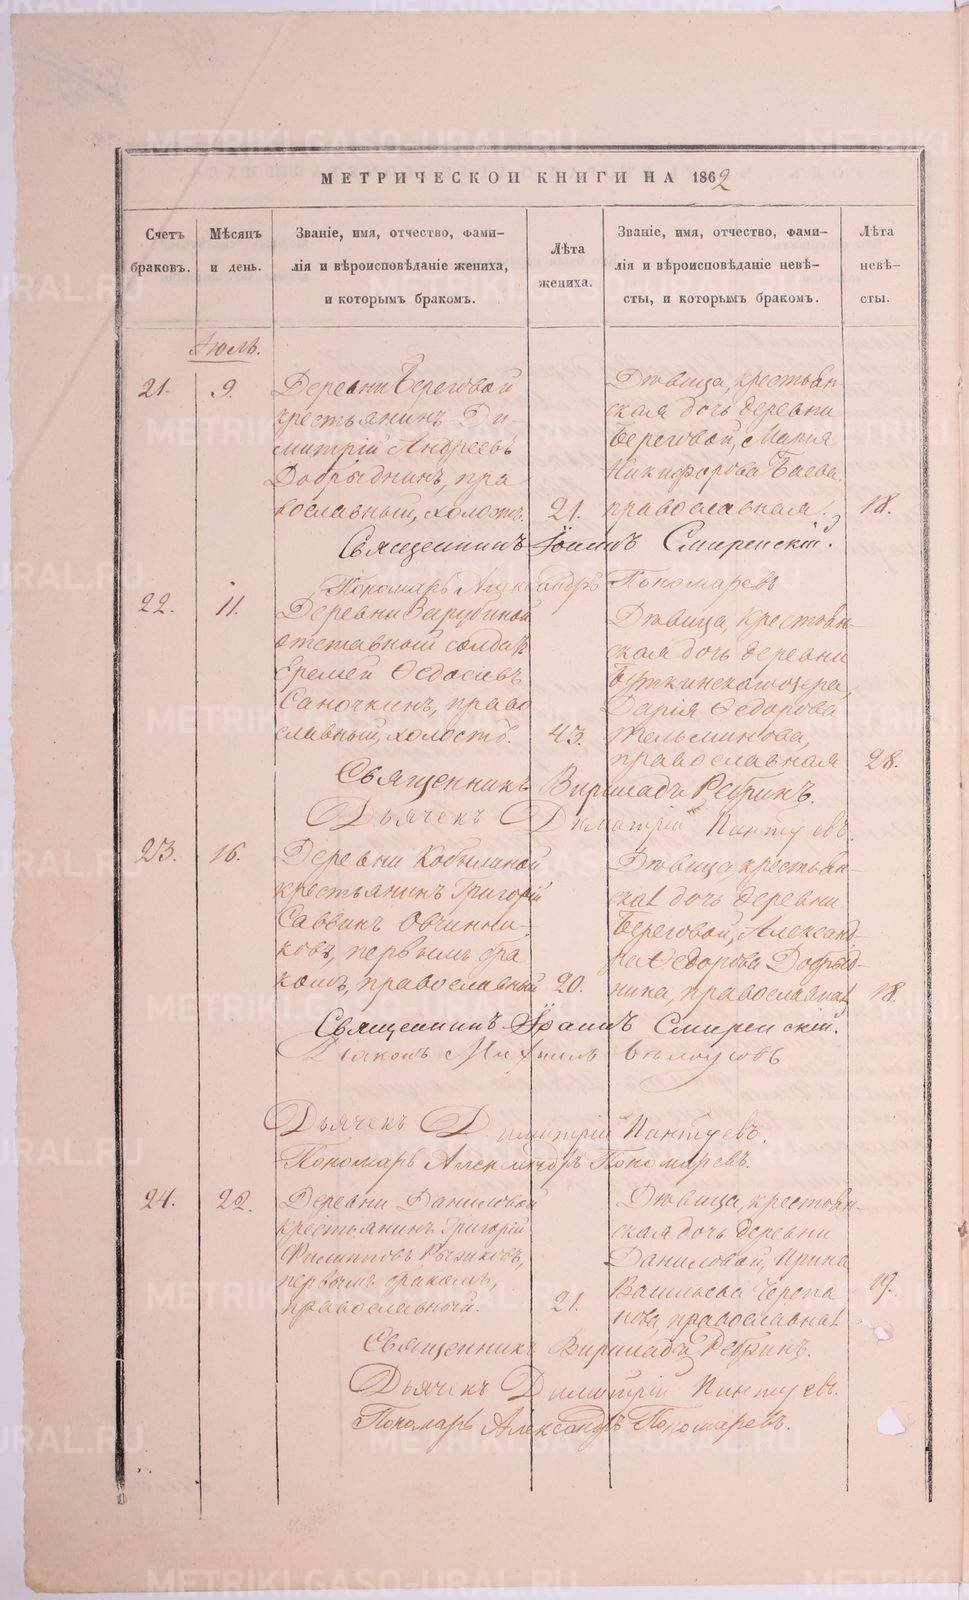 МЕТРИЧЕСКОЙ КНИГИ НА 1862
Счетъ браковъ.
Мѣсяцъ и день.
Званіе, имя, отчество, фами-
лія и вѣроисповѣданіе жениха,
и которымъ бракомъ.
Лѣта
жениха.
Званіе, имя, отчество, фами-
лія и вѣроисповѣданіе невѣ-
сты, и которымъ бракомъ.
Лѣта
невѣ-
сты.
Іюль.
21. 9. Деревни Береговой
крестьянинъ Ди
митрій Андреевъ
Добрыднинъ, пра
вославный, холостъ. 21.
Дѣвица, крестьян-
ская дочь деревни
Береговой, Марія
Никифорова Баева,
православная. 18.
Священникъ Іоаннъ Смиренскій.
Пономарь Александръ Пономаревъ
22. 11. Деревни Зарубиной
отставный солдатъ
Еремей Ѳедосѣевъ
Саночкинъ, право
славный, холостъ. 43.
Дѣвица, крестьян-
ская дочь деревни
Буткинскаго озера,
Дарія Ѳедорова
православная 28.
Священникъ Ребринъ.
Дьячекъ Димитрій Пантуевъ
23. 16. Деревни Кобылиной
крестьянинъ Григорій
Саввинъ Овчинни-
ковъ, первымъ бра
комъ, православный 20.
Дѣвица крестьян-
ская дочь деревни
Береговой, Александ-
ра Ѳедорова Добрыд-
нина, православная 18.
Священникъ Іоаннъ Смиренскій.
Діаконъ Михаилъ Бѣлоусовъ
Дьячекъ Димитрій Пантуевъ.
Пономарь Александръ Пономаревъ.
24. 22. Деревни Даниловой
крестьянинъ Григорій
Филипповъ Рычковъ,
первымъ бракомъ,
православный. 21.
Дѣвица, крестьян-
ская дочь деревни
Даниловой, Ирина
Васильева Черепа
нова, православная 19.
Священникъ Ребринъ.
Дьячекъ Димитрій Пантуевъ.
Пономарь Александръ Пономаревъ.
METRIKI.GASO-URAL.RU